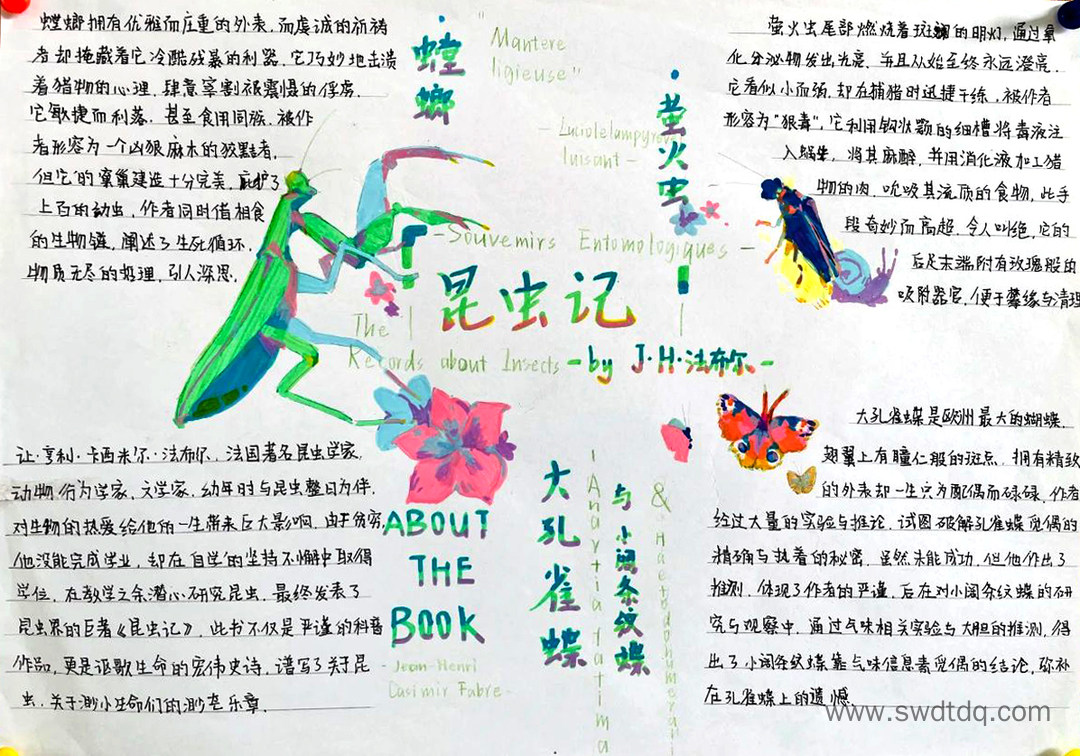 螳螂拥有优雅而庄重的外表，而虔诚的祈祷
者却掩藏着它冷酷残暴的利器，它巧妙地击溃
着猎物的心理，肆意宰割被震慑的俘虏。
它敏捷而利落，甚至食用同族，被作
者形容为一个凶狠麻木的狡黠者，
但它的窠巢建造十分完美，庇护了
上百的幼虫，作者同时借相食
的生物链，阐述了生死循环，
物质无尽的哲理，引人深思。
螳螂
"Mantere
ligieuse"
萤火虫
- Luciolelampyrever
luisant -
萤火虫尾部燃烧着斑斓的明灯，通过氧
化分泌物发出光亮，并且从始至终永远澄亮，
它看似小而弱，却在捕猎时迅捷干练，被作者
形容为"狠毒"，它利用钩状颚的细槽将毒液注
入蜗牛，将其麻醉，并用消化液加工猎
物的肉，吮吸其流质的食物，此手
段奇妙而高超，令人叫绝，它的
后足末端附有玫瑰般的
吸附器官，便于攀缘与清理
-Souvenirs Entomologiques-
昆虫记
The
Records about Insects
-by J·H·法布尔-
让·亨利·卡西米尔·法布尔，法国著名昆虫学家，
动物行为学家，文学家，幼年时与昆虫整日为伴，
对生物的热爱给他的一生带来巨大影响，由于贫穷，
他没能完成学业，却在自学的坚持不懈中取得
学位，在教学之余潜心研究昆虫，最终发表了
昆虫界的巨著《昆虫记》，此书不仅是严谨的科普
作品，更是讴歌生命的宏伟史诗，谱写了关于昆
虫，关于渺小生命们的渺茫乐章．
ABOUT
THE
BOOK
- Jean-Henri
Casimir Fabre-
大孔雀蝶
- Anartia fatima
与小阔条纹蝶
&
大孔雀蝶是欧洲最大的蝴蝶，
翅翼上有瞳仁般的斑点，拥有精致
的外表却一生只为配偶而碌碌，作者
经过大量的实验与推论，试图破解孔雀蝶觅偶的
精确与执着的秘密，虽然未能成功，但他作出了
推测，体现了作者的严谨，后在对小阔条纹蝶的研
究与观察中，通过气味相关实验与大胆的推测，得
出了小阔条纹蝶靠气味信息素觅偶的结论，弥补
在孔雀蝶上的遗憾
www.swdtdq.com